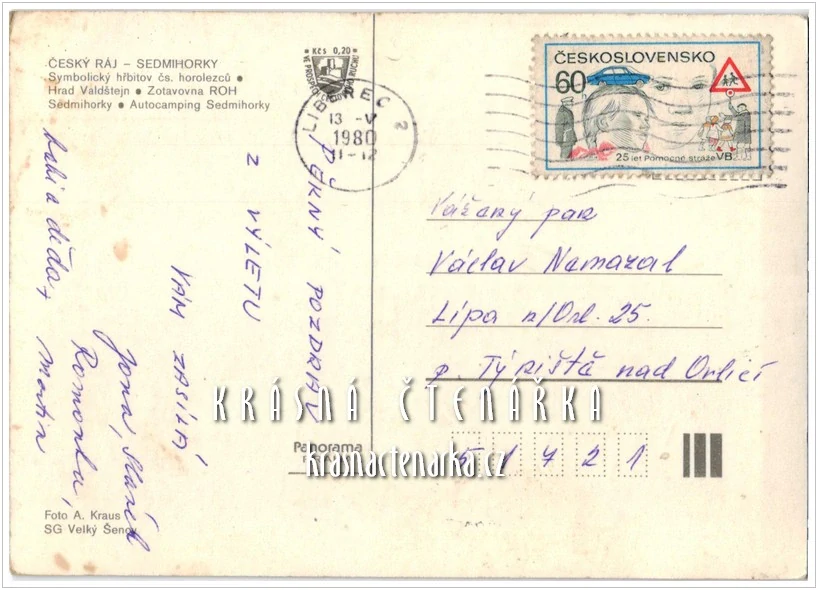 ČESKÝ RÁJ – SEDMIHORKY
Symbolický hřbitov čs. horolezců •
Hrad Valdštejn • Zotavovna ROH
Sedmihorky • Autocamping Sedmihorky
Kčs 0,20
LIBEREC 2
13 -V
1980
11-12
ČESKOSLOVENSKO
60
25 let Pomocné stráže VB
PĚKNÝ POZDRAV
Z VÝLETU
VÁM ZASÍLÁ
Jana, Slávek
Romanka,
Martin
děda
Vážený pan
Václav Namazal
Lípa n/Orl. 25.
p. Týniště nad Orlicí
51721
KRÁSNÁ ČTENÁŘKA
krasnactenarka.cz
Panorama
Foto A. Kraus
SG Velký Šenov